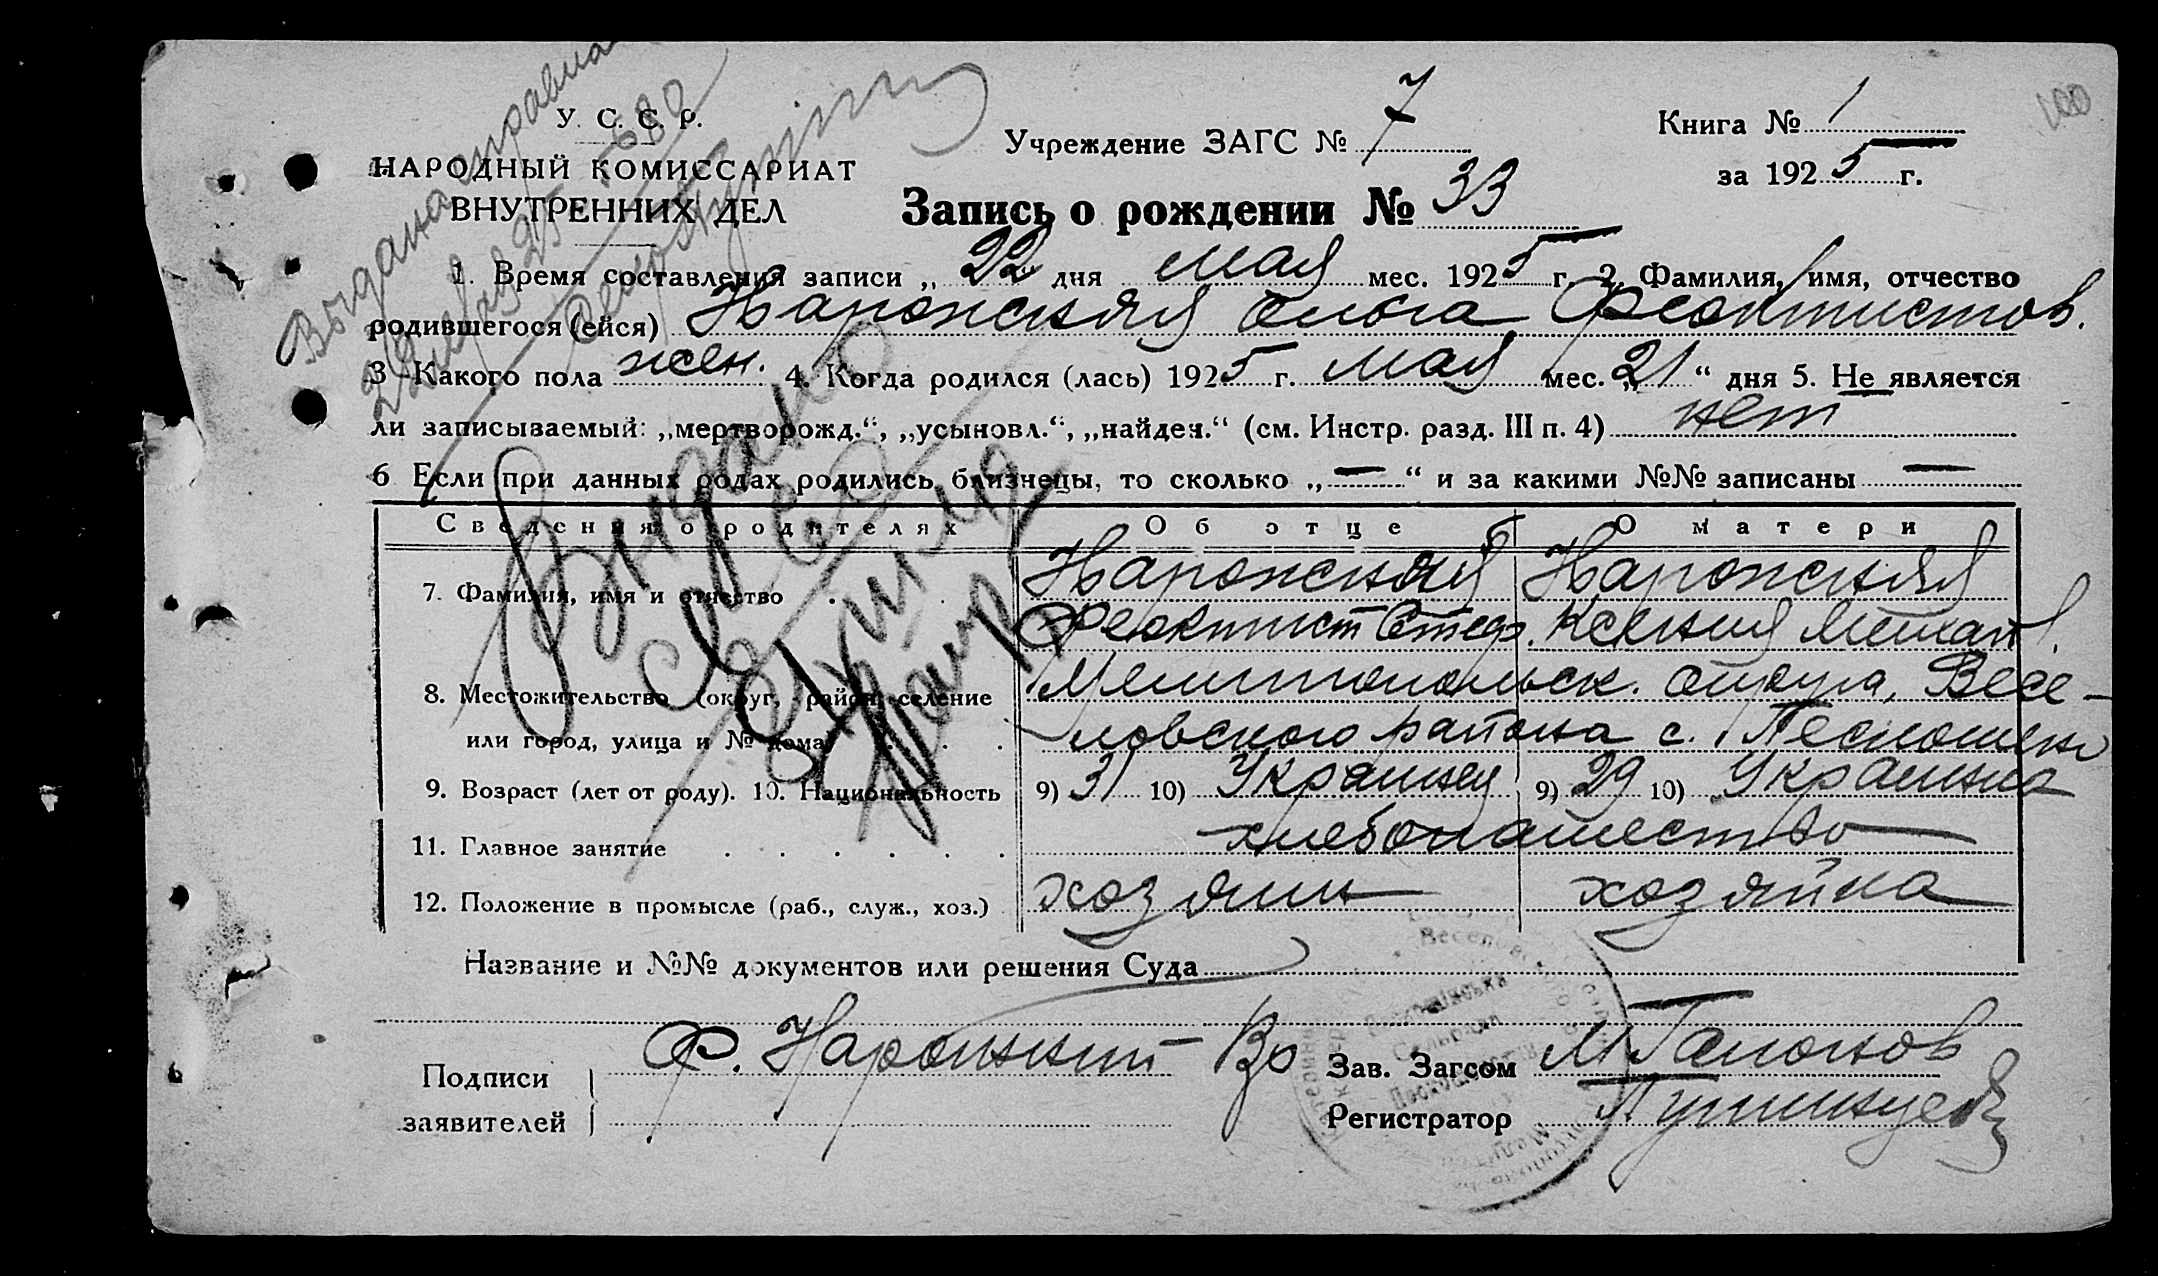 100
У. С. С. Р.
НАРОДНЫЙ КОМИССАРИАТ
ВНУТРЕННИХ ДЕЛ
Учреждение ЗАГС № 7
Книга № 1
за 1925 г.
Запись о рождении № 33
Выдана справка
1. Время составления записи „ 22 дня мая мес. 1925 г. 2. Фамилия, имя, отчество
родившегося (ейся) Наронская Ольга Феоктистов.
3 Какого пола жен. 4. Когда родился (лась) 1925 г. мая мес. „21 “ дня 5. Не является
ли записываемый: „мертворожд.“, „усыновл.“, „найден.“ (см. Инстр. разд. III п. 4) нет
6 Если при данных родах родились близнецы, то сколько „—“ и за какими №№ записаны —
Сведения о родителях Об отце О матери
7. Фамилия, имя и отчество Наронская Наронская
Феоктист Стеф. Ксения Михайл.
8. Местожительство (округ, район, селение Мелитопольск. округа, Весе-
или город, улица и № дома) ловского района с.
9. Возраст (лет от роду). 10. Национальность 9) 31 10) Украинец 9) 29 10) Украинка
11. Главное занятие хлебопашество
12. Положение в промысле (раб., служ., хоз.) хозяин хозяйка
Название и №№ документов или решения Суда
Подписи Ф. Наронский Зав. Загсом М Гапонов
заявителей Регистратор
Выдано